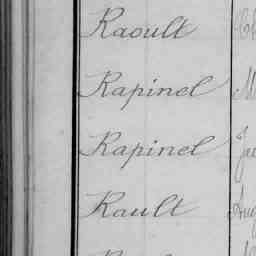 Raoult
Rapinel
Rapinel
Rault